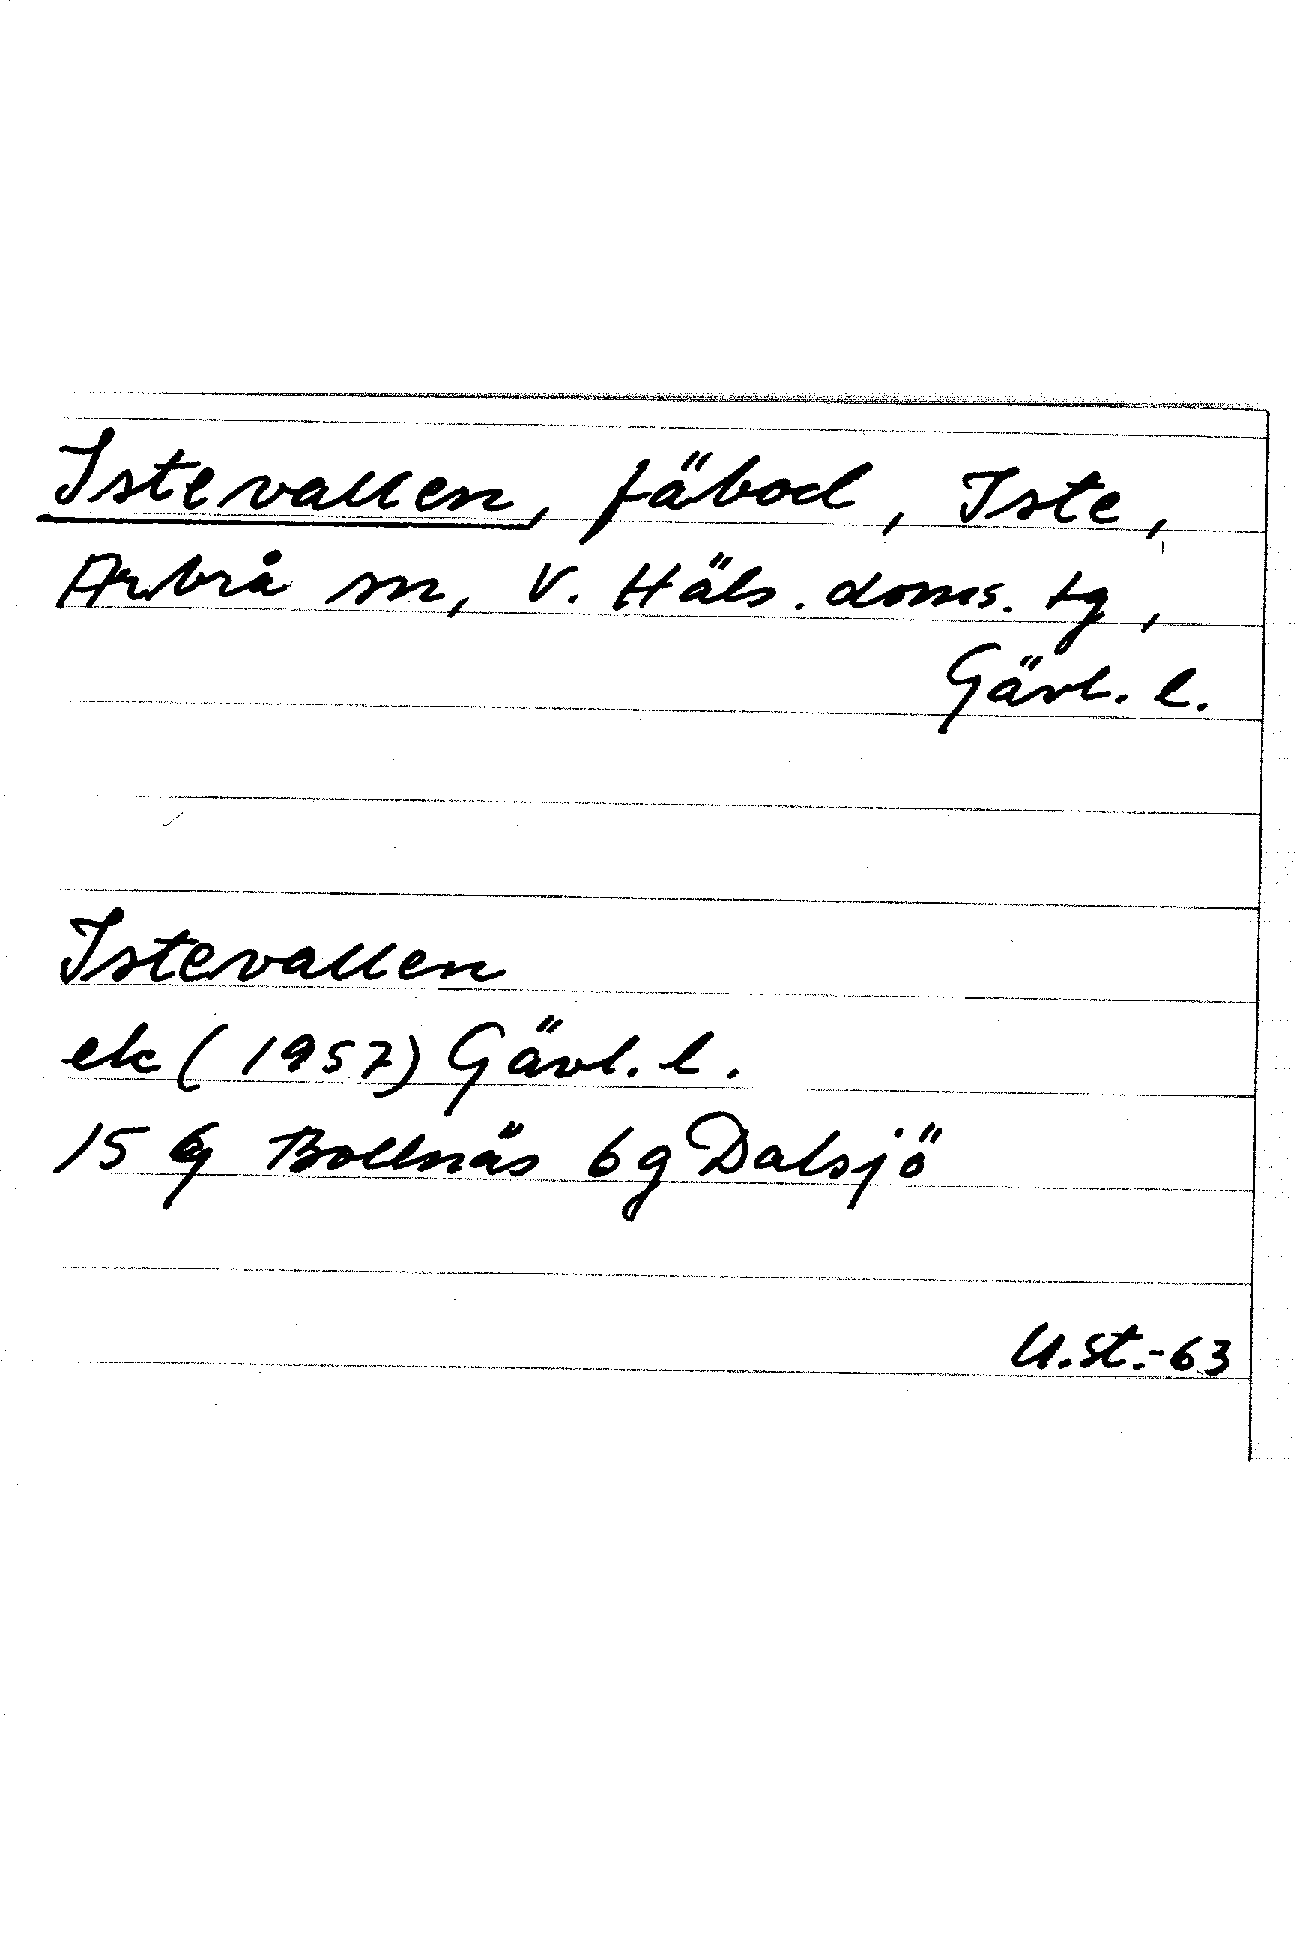 Istevallen, fäbod, Iste,
Arbrå sn, V. Häls. doms. tg,
Gävl. l.
Istevallen
ek (1957) Gävl. l.
15 G Bollnäs 6g Dalsjö
U.st.-63